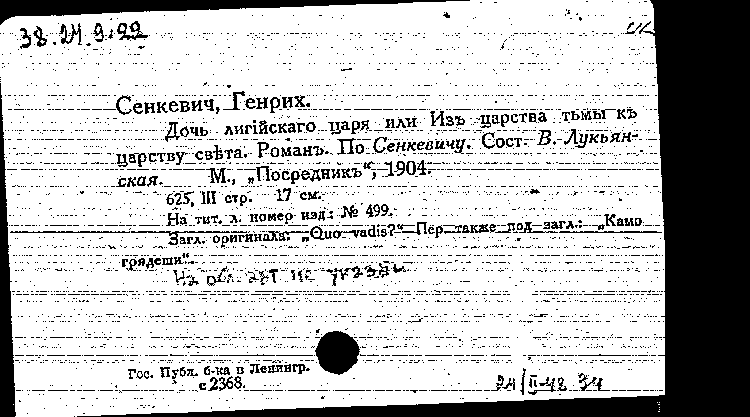 38.24.9.22
Сенкевич, Генрих.
Дочь лигійскаго царя или Изъ царства тьмы къ
царству свѣта. Романъ. По Сенкевичу. Сост. В. Лукьян-
ская. М., „Посредникъ", 1904.
625, III стр. 17 см.
На тит. л. номер изд.: № 499.
Загл. оригинала: „Quo vadis?" Пер. также под загл.: „Камо
грядеши".
На обл. авт. не указан
Гос. Публ. б-ка в Ленингр.
с 2368.
24/II-48 34